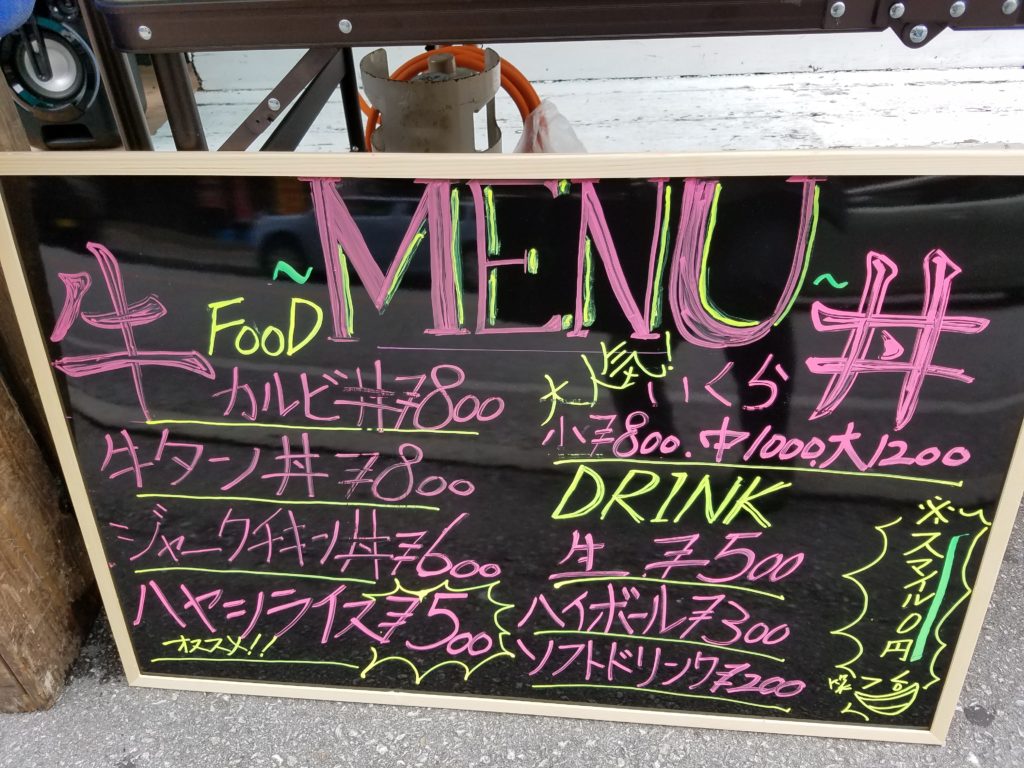 ~MENU~
牛
丼
FOOD
カルビ丼¥800
牛タン丼¥800
ジャークチキン丼¥600
ハヤシライス¥500
オススメ!!
大人気!
いくら
小¥800.中1000.大1200
DRINK
生¥500
ハイボール¥300
ソフトドリンク¥200
※スマイル0円